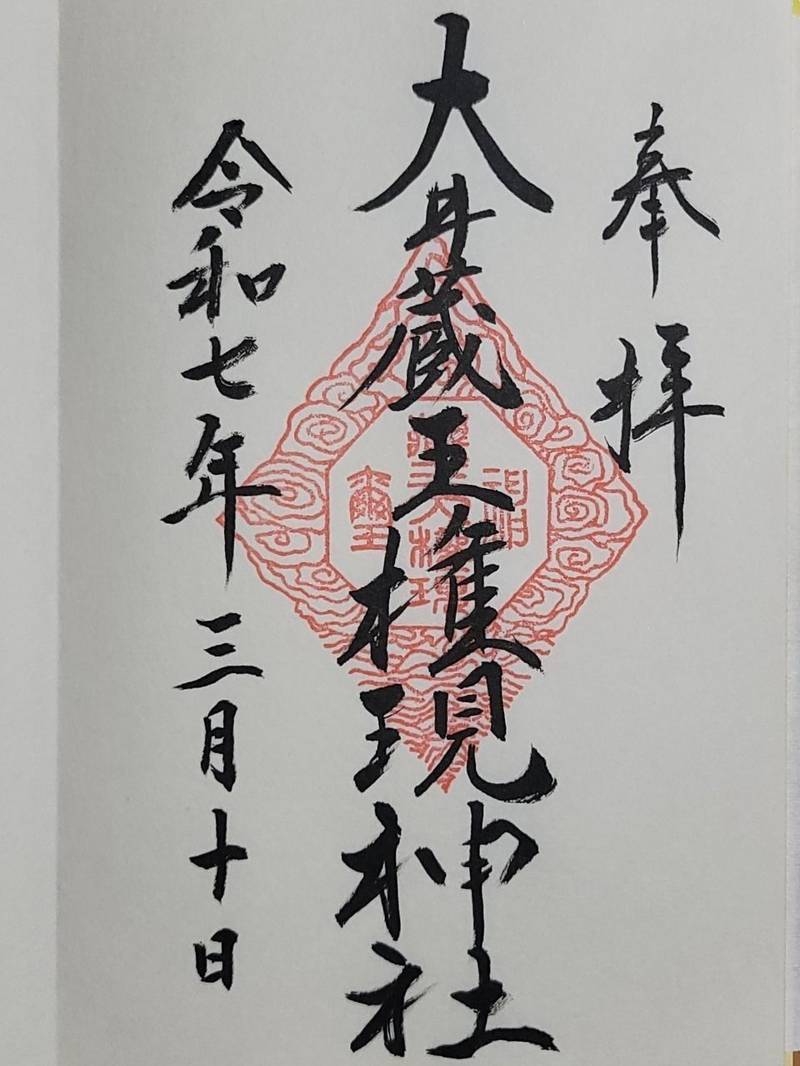 奉拝
大井蔵王権現神社
令和七年三月十日